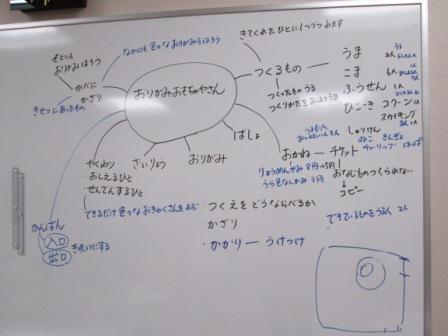 きてくれたひとに1つづつわたす
なかにも色々なおりがみをはろう
ぜんたいに
おりがみはろう
かべに
かざり
きせつにあったもの
おりがみおもちゃやさん
つくるもの
うま
こま
ふうせん
ひこーき
コクーン
スカイキング
つくったものうる
つくりかたをおしえよう
しゅりけん
ねこ
きんぎょ
チューリップ
はっぱ
ばしょ
おりがみ
ざいりょう
やくわり
・おしえるひと
・せんでんするひと
できるだけ色々なおきゃくさんをよぶ
おかね
チケット
りょうめんがみ
うら色なしかみ 3円
おなじものつくらない
コピー
・つくえをどうならべるか
かざり
・かかり ー うけつけ
できているものをうる人 2人
かんばん
入口
出口
きれいにする